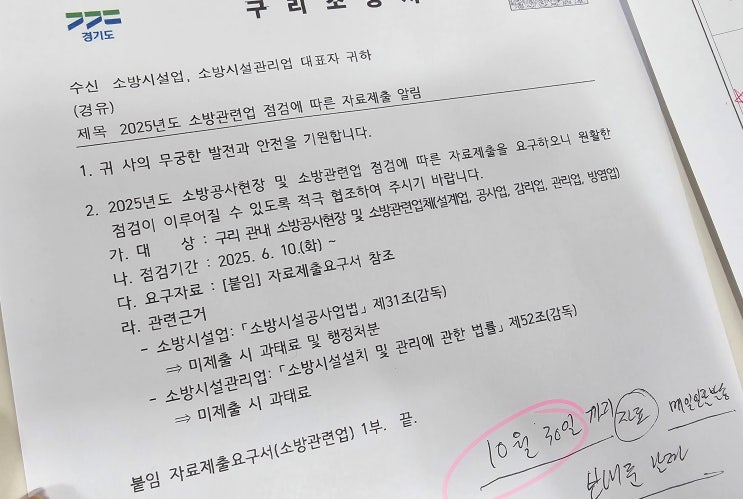 경기도
구리소방서
수신 소방시설업, 소방시설관리업 대표자 귀하
(경유)
제목 2025년도 소방관련업 점검에 따른 자료제출 알림
1. 귀 사의 무궁한 발전과 안전을 기원합니다.
2. 2025년도 소방공사현장 및 소방관련업 점검에 따른 자료제출을 요구하오니 원활한
점검이 이루어질 수 있도록 적극 협조하여 주시기 바랍니다.
가. 대 상 : 구리 관내 소방공사현장 및 소방관련업체(설계업, 공사업, 감리업, 관리업, 방염업)
나. 점검기간 : 2025. 6. 10.(화) ~
다. 요구자료 : [붙임] 자료제출요구서 참조
라. 관련근거
- 소방시설업: 「소방시설공사업법」 제31조(감독)
⇒ 미제출 시 과태료 및 행정처분
- 소방시설관리업: 「소방시설설치 및 관리에 관한 법률」 제52조(감독)
⇒ 미제출 시 과태료
붙임 자료제출요구서(소방관련업) 1부. 끝.
10월 30일 까지 자료